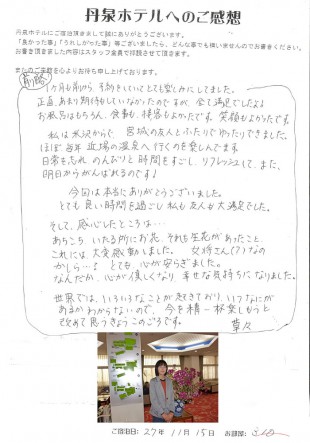 丹泉ホテルへのご感想
丹泉ホテルにご宿泊頂きまして誠にありがとうございます。
「良かった事」「うれしかった事」等ございましたら、どんな事でも構いませんのでお書きください。
お書き頂きました内容はスタッフ全員で拝読させて頂きます。
またのご来館を心よりお待ち申し上げております。
前略
1ヶ月も前から、予約をしていてとても楽しみにしてました。
正直、あまり期待もしていなかったのですが、全て満足でしたよ
お風呂はもちろん、食事も、接客もよかったです。笑顔もよかったです。
私は水沢からで、宮城の友人とふたりでゆったりできました。
ほぼ毎年近場の温泉へ行くのを楽しんでます
日常を忘れのんびりと時間をすごし、リフレッシュして、また、
明日からがんばれるのです!
今回は本当にありがとうございました。
とても良い時間を過ごし私も友人も大満足でした。
そして、感心したところは…
あちこち、いたる所にお花、それも生花があったこと、
これには、大変感動しました。女将さん(?)なの
かしら…? とても、心が安らぎました。
なんだか、心が優しくなり、幸せな気持ちになりました。
世界では、いろいろなことが起きており、いつなにが
あるかわからないので、今を精一杯楽しもうと
改めて思うきょうこのごろです。
草々
ご宿泊日: 27年11月15日 お部屋: